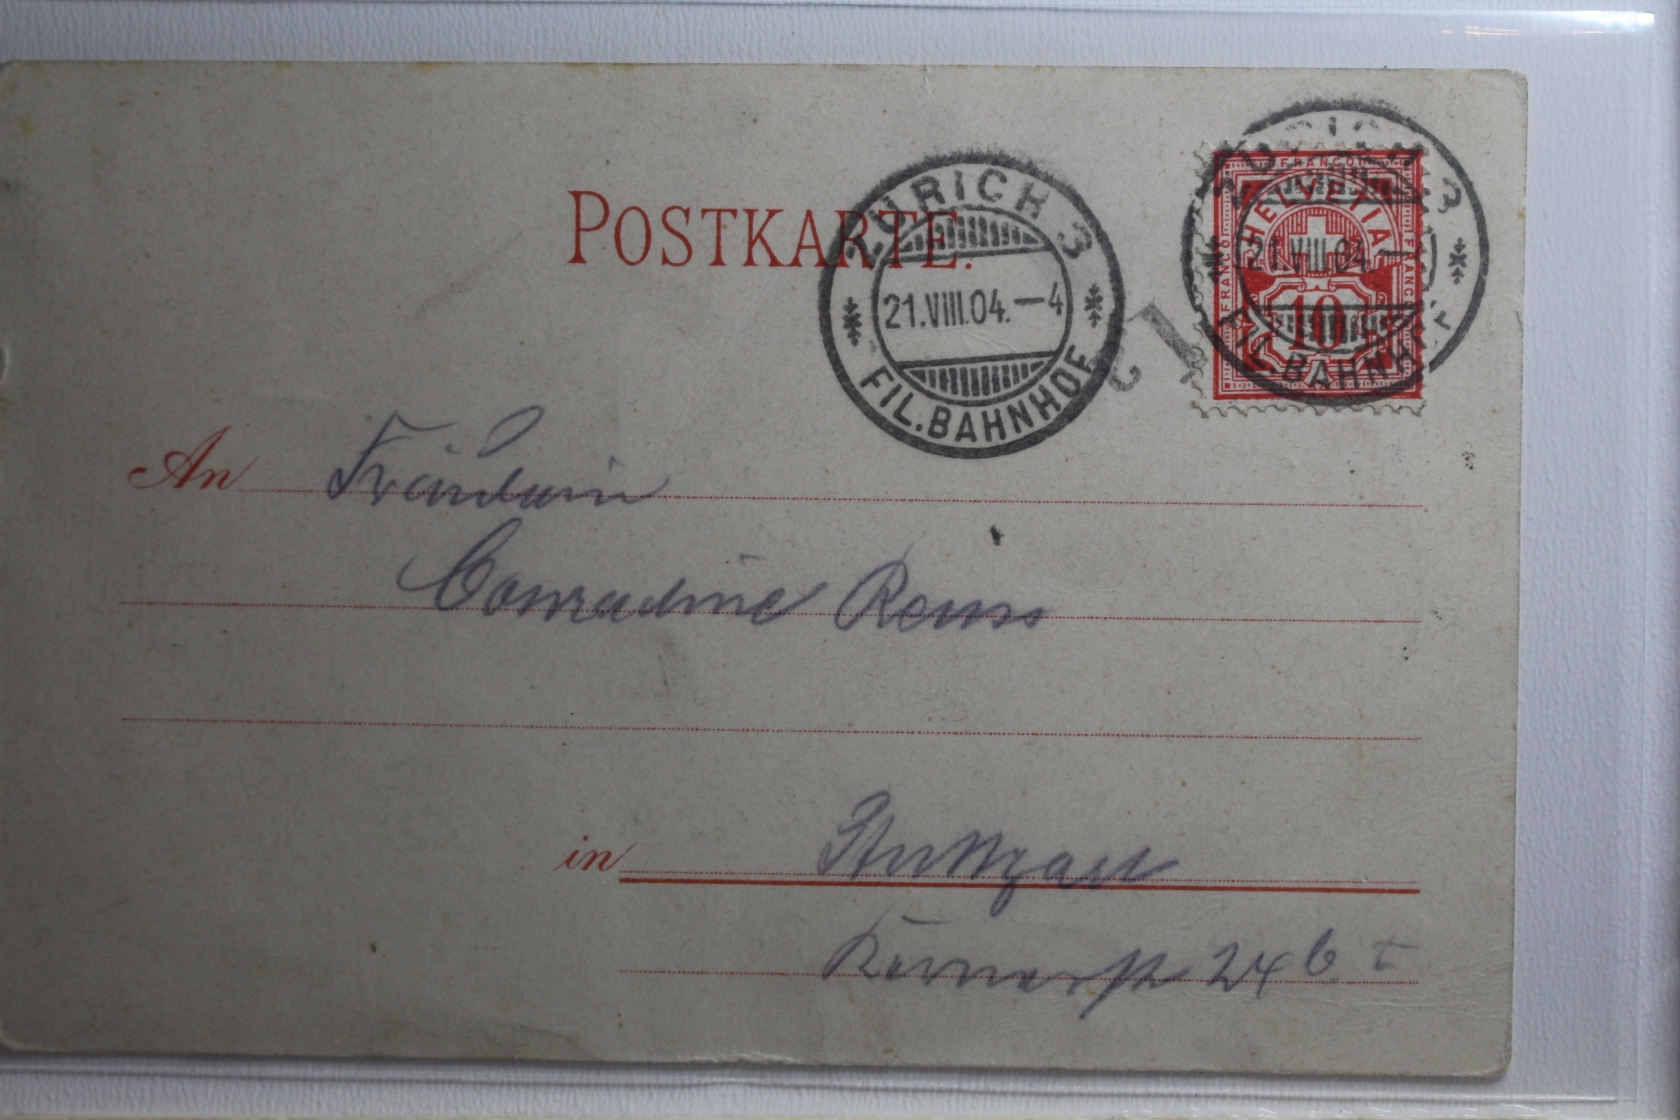 POSTKARTE.
ZÜRICH 3
21.VIII.04.–4
FIL.BAHNHOF
ZÜRICH 3
21.VIII.04.
FIL.BAHNHOF
FRANCO
FRANCO
FRANCO
HELVETIA
10
An Fräulein
Conradine Reuss
in Stuttgart
Kernerstr 24b